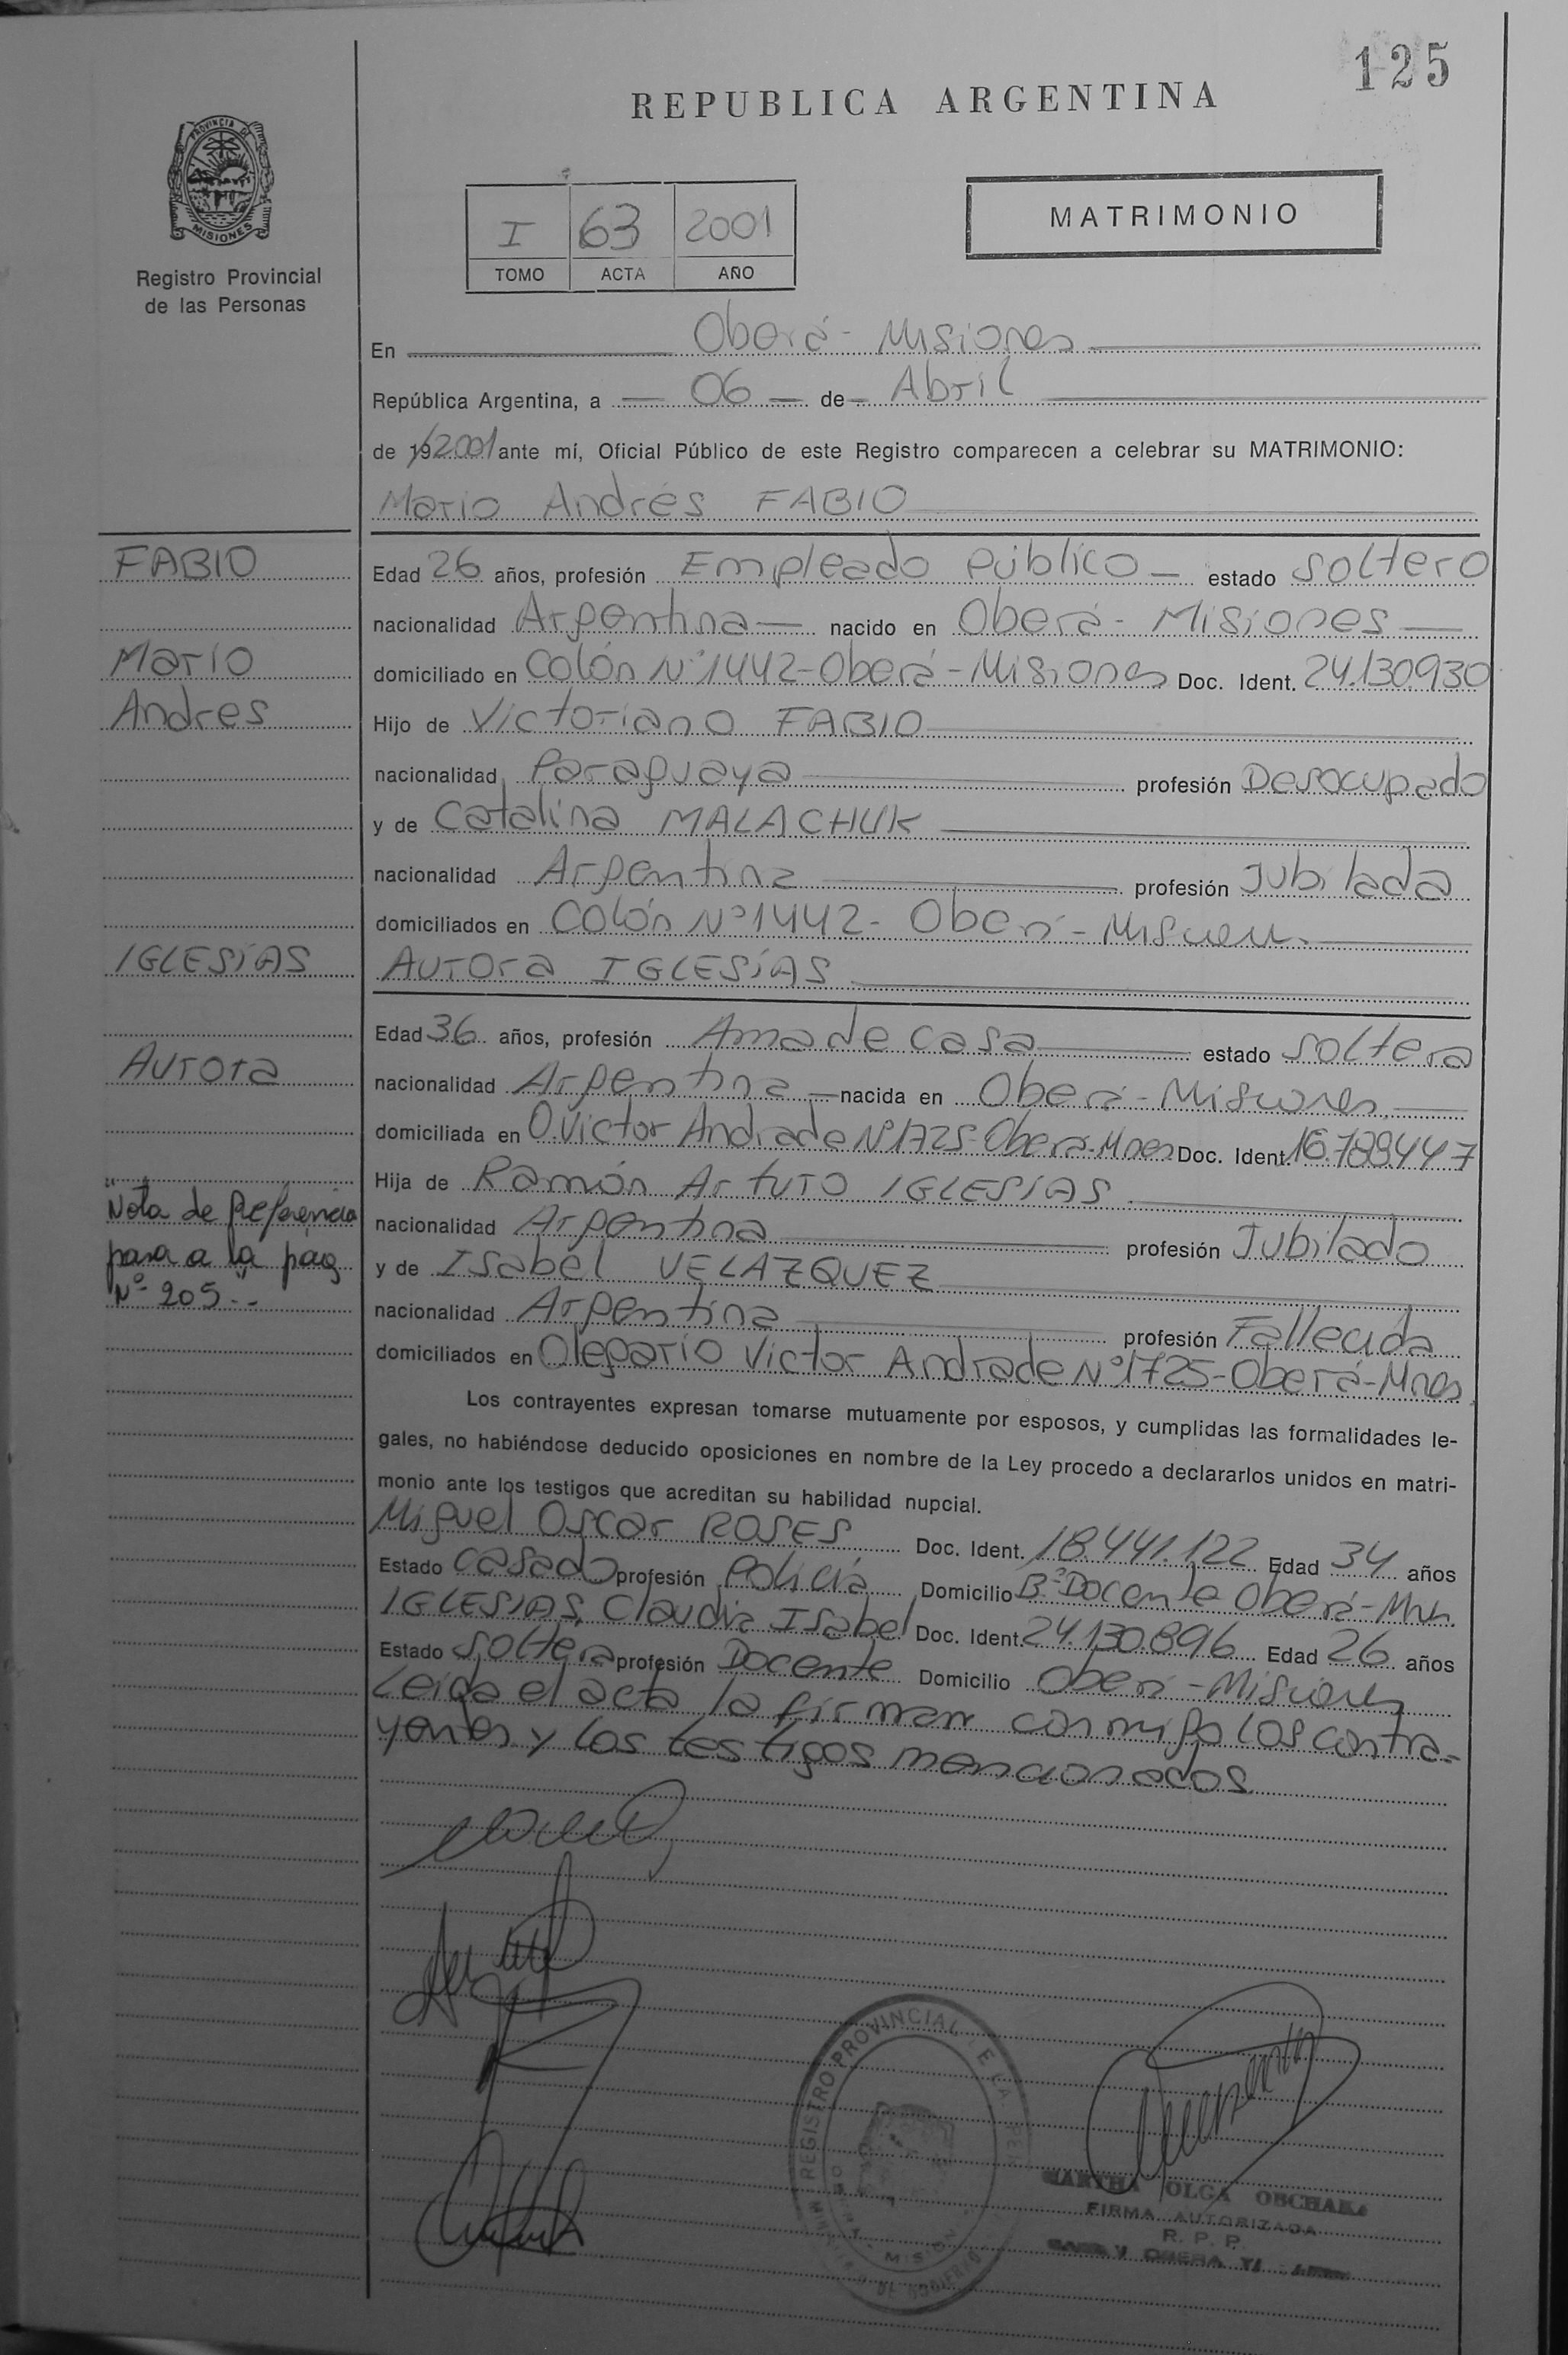 125
REPUBLICA ARGENTINA
PROVINCIA DE
MISIONES
Registro Provincial
de las Personas
I 63 2001
TOMO ACTA AÑO
MATRIMONIO
En Oberá - Misiones
República Argentina, a 06 de Abril
de 19 2001 ante mí, Oficial Público de este Registro comparecen a celebrar su MATRIMONIO:
Mario Andrés FABIO
FABIO
Mario
Andres
Edad 26 años, profesión Empleado Público estado soltero
nacionalidad Argentina nacido en Oberá - Misiones
domiciliado en Colón Nº 1442-Oberá-Misiones Doc. Ident. 24.130.930
Hijo de Victoriano FABIO
nacionalidad Paraguaya profesión Desocupado
y de Catalina MALACHUK
nacionalidad Argentina profesión Jubilada
domiciliados en Colón Nº 1442- Oberá - Misiones
IGLESÍAS
Aurora
Aurora IGLESÍAS
Edad 36 años, profesión Ama de casa estado soltera
nacionalidad Argentina nacida en Oberá - Misiones
domiciliada en O. Victor Andrade Nº 1725-Oberá-Mnes Doc. Ident. 16.789.447
Hija de Ramón Arturo IGLESÍAS
nacionalidad Argentina profesión Jubilado
y de Isabel VELAZQUEZ
nacionalidad Argentina profesión Fallecida
domiciliados en Olegario Victor Andrade Nº 1725-Oberá-Mnes
"Nota de Referencia
pasa a la pág
Nº 205.-"
Los contrayentes expresan tomarse mutuamente por esposos, y cumplidas las formalidades le-
gales, no habiéndose deducido oposiciones en nombre de la Ley procedo a declararlos unidos en matri-
monio ante los testigos que acreditan su habilidad nupcial.
Miguel Oscar ROSES Doc. Ident. 18.441.122 Edad 34 años
Estado casado profesión Policía Domicilio Bº Docente Oberá-Mnes
IGLESIAS, Claudia Isabel Doc. Ident. 24.130.896 Edad 26 años
Estado soltera profesión Docente Domicilio Oberá - Misiones
Leída el acta la firman conmigo los contra-
yentes y los testigos mencionados
REGISTRO PROVINCIAL DE LA PER
MINISTERIO DE GOBIERNO
MARTHA OLGA OBCHAKA
FIRMA AUTORIZADA
R. P. P.
OBERA